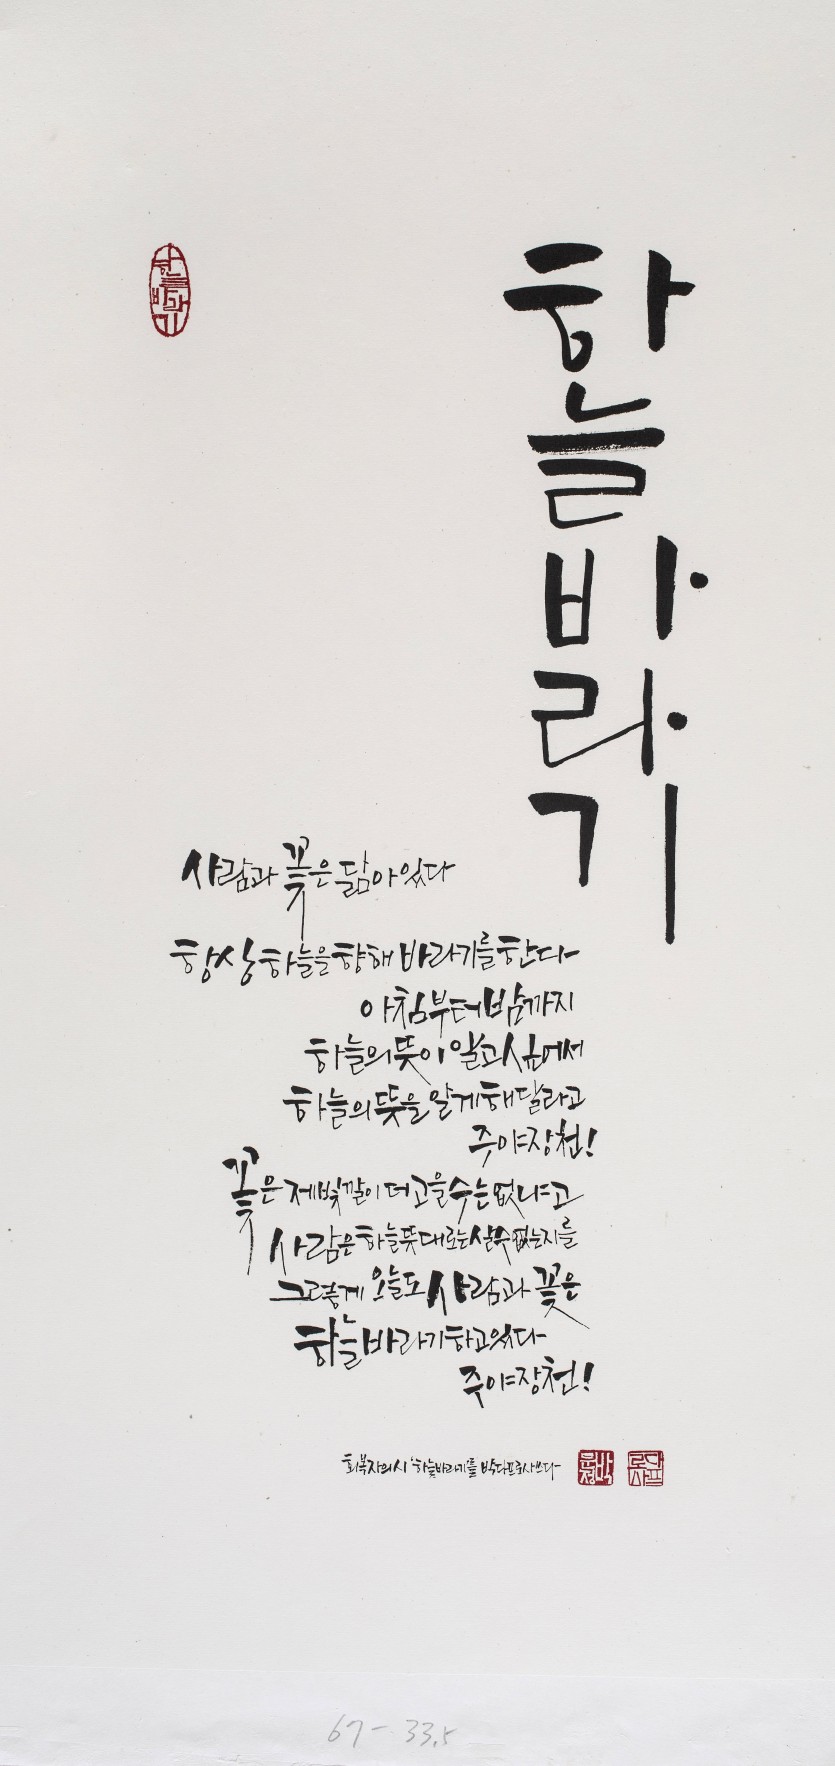 하늘바라기
하늘바라기
사람과 꽃은 닮아 있다
항상 하늘을 향해 바라기를 한다
아침부터 밤까지
하늘의 뜻이 알고 싶어서
하늘의 뜻을 알게 해달라고
주야장천!
꽃은 제 빛깔이 더 고울 수는 없냐고
사람은 하늘 뜻대로는 살 수 없는지를
그렇게 오늘도 사람과 꽃은
하늘바라기 하고 있다
주야장천!
회복자의 시 '하늘바라기'를 박다프로사 쓰다
67-33.5